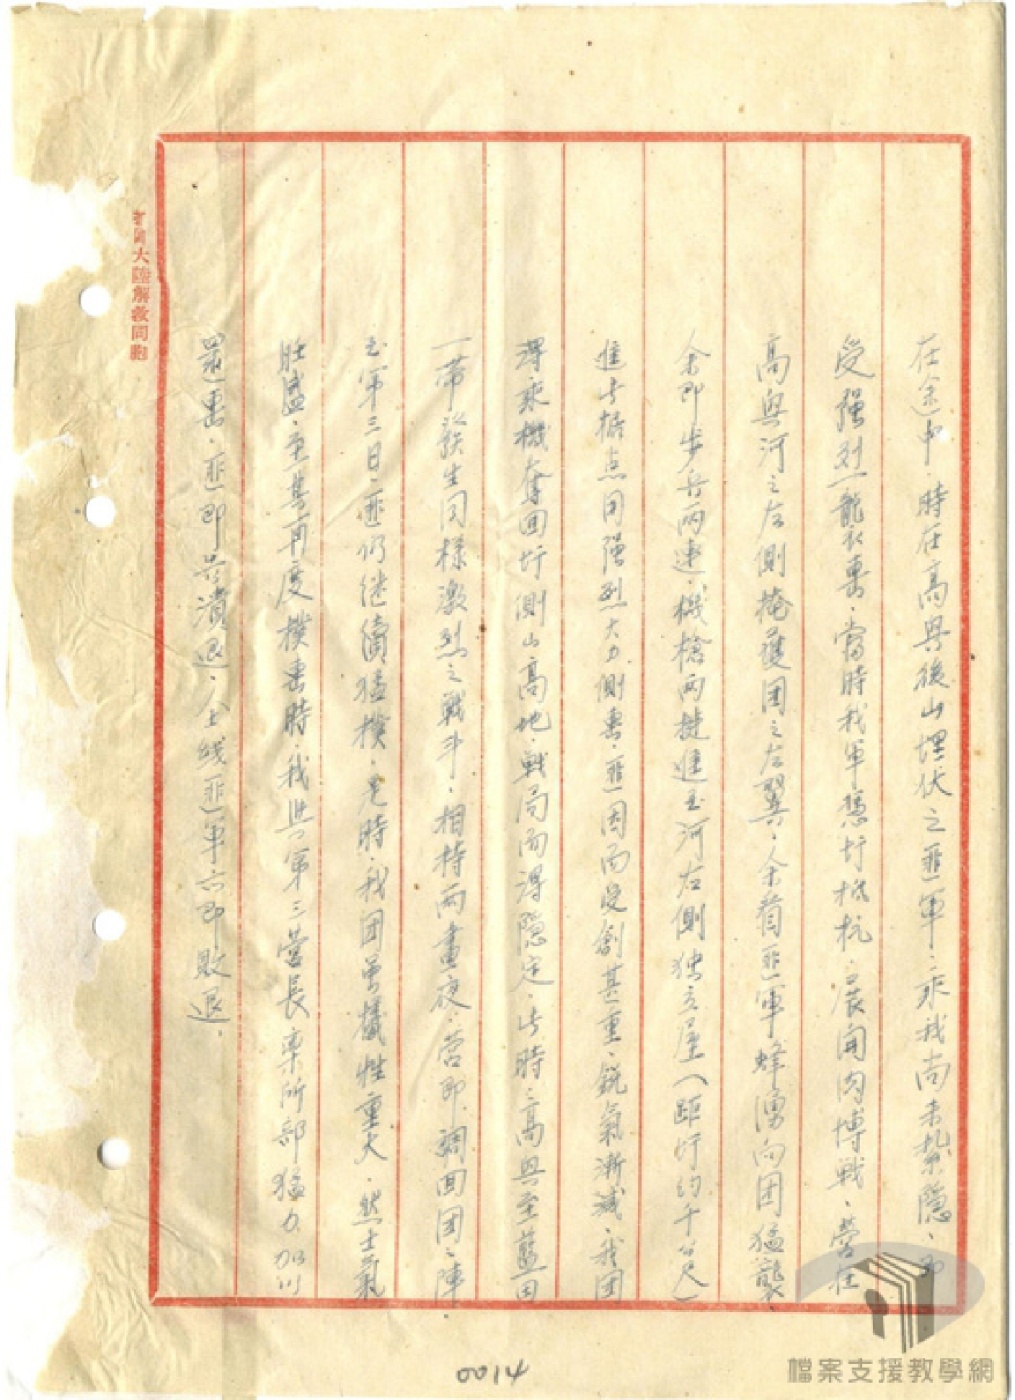 在途中、時在高興後山埋伏之匪軍、乘我尚未紮隱、即
受强烈襲擊、當時我軍憑圩抵抗、展開肉博戰、營在
高興河之左側掩護团之左翼、余看匪軍蜂湧向团猛襲、
余即步兵兩連、機槍兩挺進至河左側独立屋（距圩約千公尺）
進占據点用强烈火力側擊、匪因而受創甚重、銳氣漸減、我团
得乘機奪回圩側山高地、戰局而得隐定、此時、高興至藍田
一帶、發生同樣激烈之戰斗、相持兩晝夜、營即調回团陣、
至第三日、匪仍继續猛撲、是時、我团曾犠牲重大、然士氣
旺盛、至其再度撲擊時、我與第三營長率所部猛力加以
還擊、匪即告潰退、全线匪軍亦即敗退、
大陸解救同胞
0014
檔案支援教學網